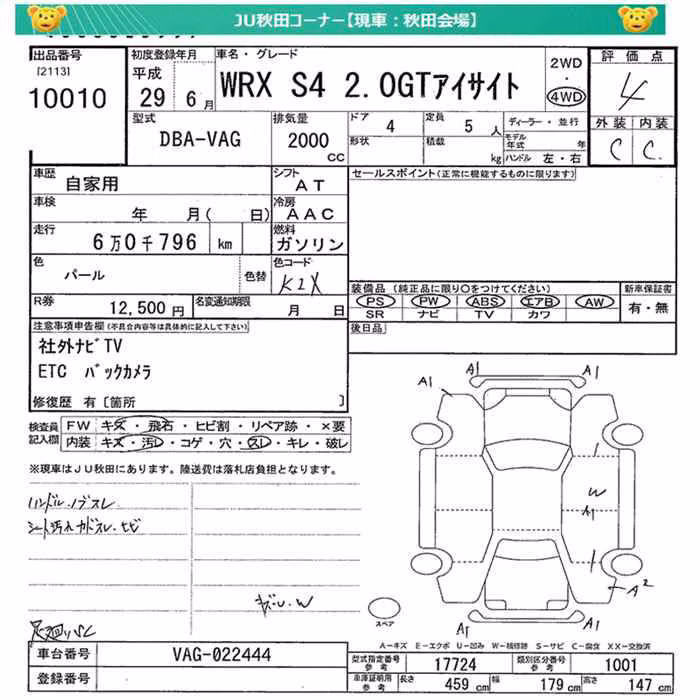 JU秋田コーナー【現車：秋田会場】
出品番号
[2113]
10010
初度登録年月
平成
29年 6月
車名・グレード
WRX S4 2.0GTアイサイト
2WD
・
4WD
評価点
4
外装 内装
C C
型式
DBA-VAG
排気量
2000
CC
ドア 4
形状
定員 5 人
積載 kg
ディーラー・並行
モデル年式 年
ハンドル 左・右
車歴 自家用
シフト AT
車検 年 月( 日)
冷房 AAC
走行 6万0千796 km
燃料 ガソリン
色 パール
色替
色コード K1X
R券 12,500円
名変通知期限 月 日
セールスポイント(正常に機能するものに限ります)
装備品 (純正品に限り○をつけてください)
PS PW ABS エアB AW
SR ナビ TV カワ
新車保証書
有・無
後日品
注意事項申告欄(不具合内容等は具体的に記入して下さい)
社外ナビTV
ETC バックカメラ
修復歴 有〔箇所 〕
検査員記入欄
FW キズ・飛石・ヒビ割・リペア跡・×要
内装 キズ・汚レ・コゲ・穴・スレ・キレ・破レ
※現車はJU秋田にあります。陸送費は落札店負担となります。
ハンドル、ノブスレ
シート汚れ
キズ・U・W
A1
A1
A1
A1
W
A1
A2
A1
A1
スペア
A=キズ E=エクボ U=凹み W=補修跡 S=サビ C=腐食 XX=交換済
車台番号 VAG-022444
登録番号
型式指定番号 17724
参考
類別区分番号 1001
参考
車庫証明用
参考
長さ 459 cm
幅 179 cm
高さ 147 cm